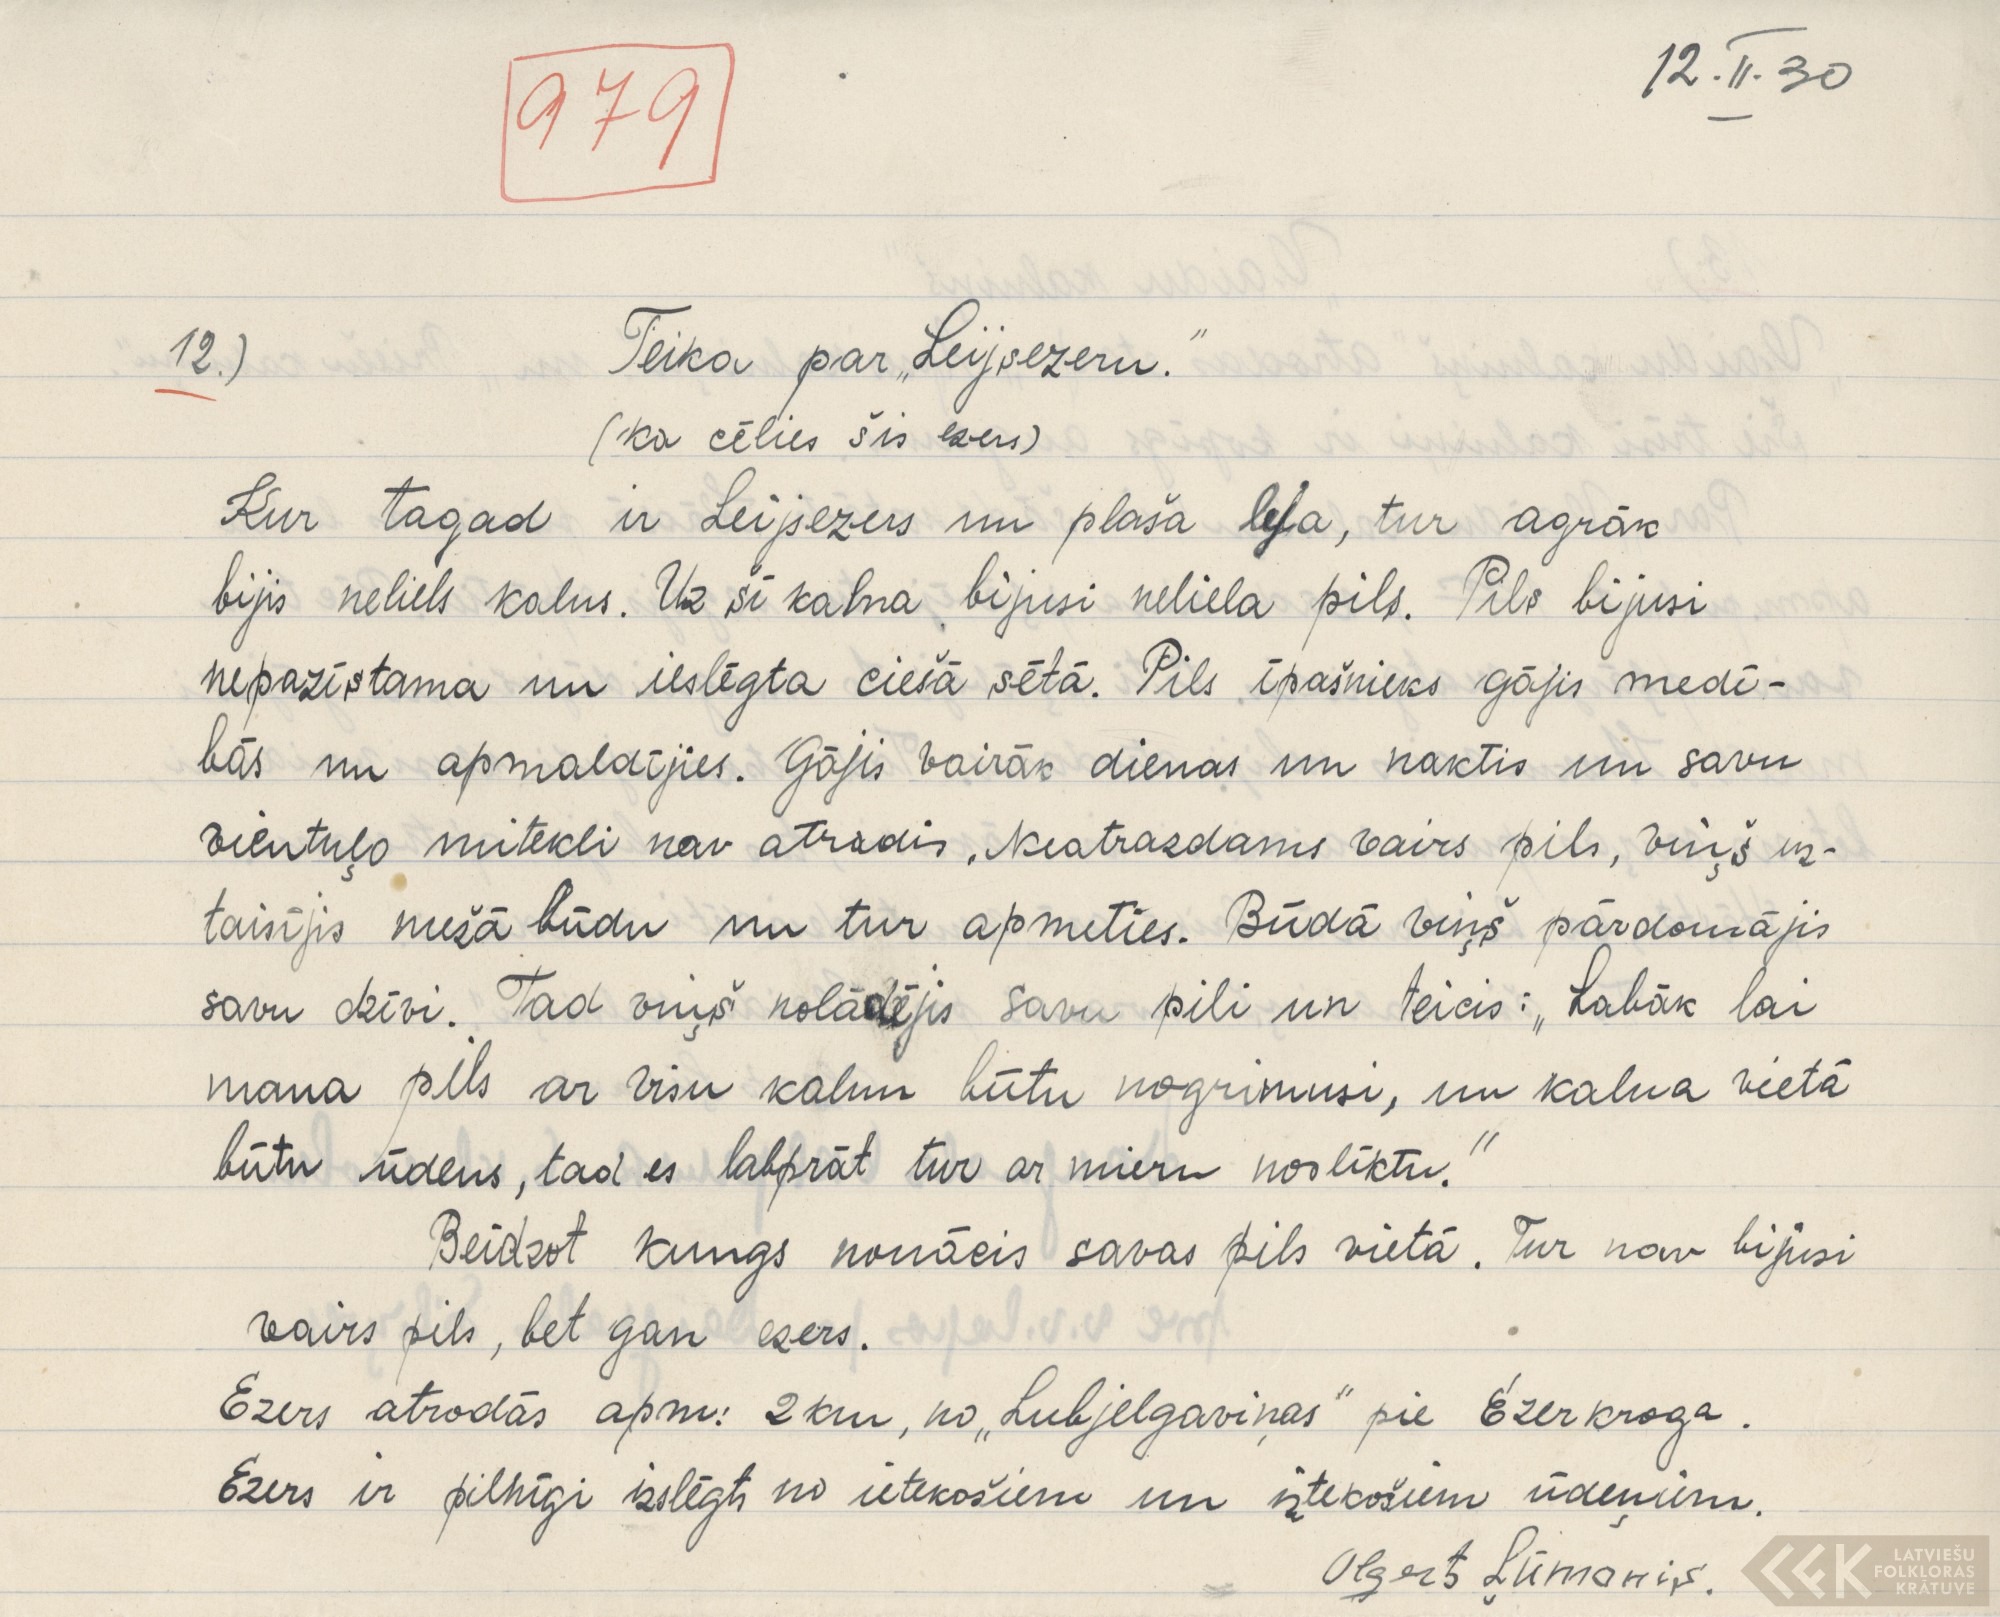 979
12.II.30
12.) Teika par „Leijsezeru."
(ka cēlies šis ezers)
Kur tagad ir Leijsezers un plaša leja, tur agrāk
bijis neliels kalns. Uz šī kalna bijusi neliela pils. Pils bijusi
nepazīstama un ieslēgta ciešā sētā. Pils īpašnieks gājis medī-
bās un apmaldījies. Gājis vairāk dienas un naktis un savu
vientuļo mitekli nav atradis. Neatrazdams vairs pils, viņš uz-
taisījis mežā būdu un tur apmeties. Būdā viņš pārdomājis
savu dzīvi. Tad viņš nolādējis savu pili un teicis: „Labāk lai
mana pils ar visu kalnu būtu nogrimusi, un kalna vietā
būtu ūdens, tad es labprāt tur ar mieru noslīktu."
Beidzot kungs nonācis savas pils vietā. Tur nav bijusi
vairs pils, bet gan ezers.
Ezers atrodās apm: 2 km, no „Lubjelgaviņas" pie Ezerkroga.
Ezers ir pilnīgi izslēgts no ietekošiem un iztekošiem ūdeņiem.
Olgerts Ļūmanis.
LATVIEŠU
FOLKLORAS
KRĀTUVE